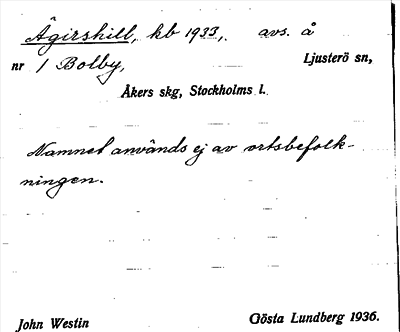 Ägirshill, kb 1933, avs. å
nr 1 Bolby, Ljusterö sn,
Åkers skg, Stockholms l.
Namnet används ej av ortsbefolk-
ningen.
John Westin Gösta Lundberg 1936.